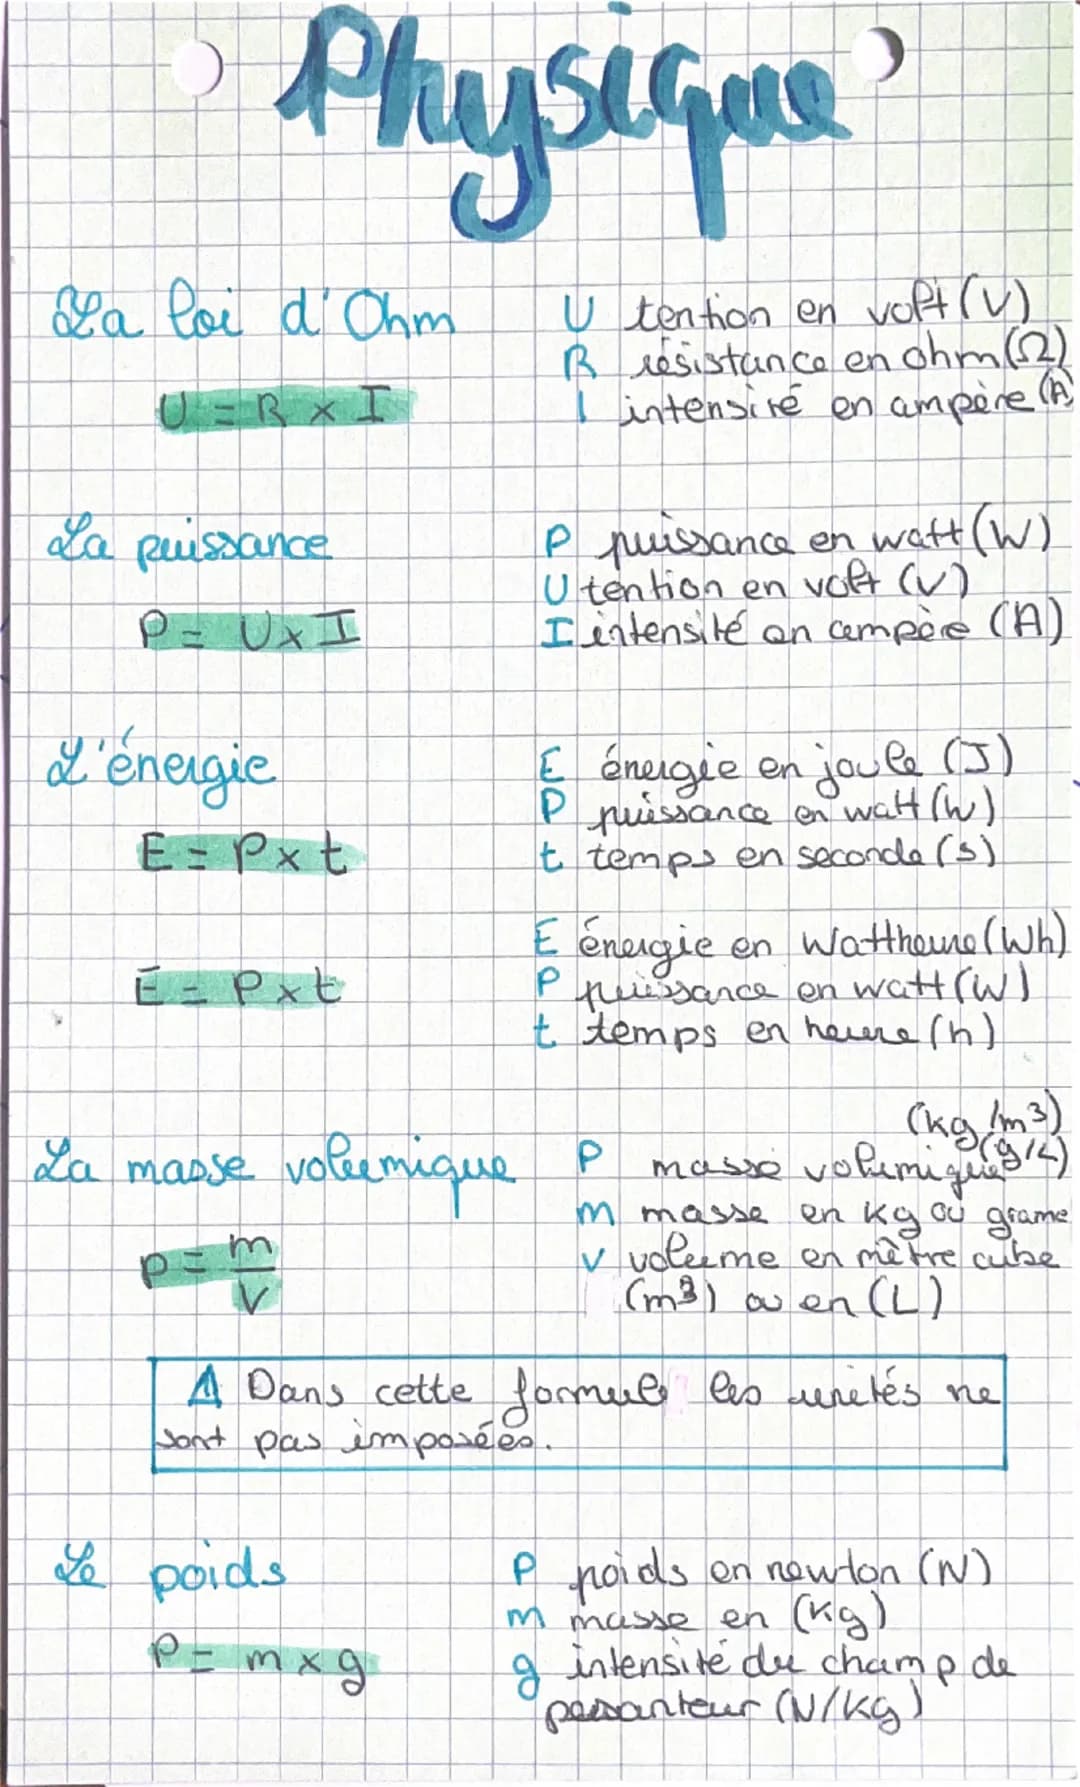 Physique
La loi d'Ohm
U tention en volt (V)
R résistance en ohm (Ω)
U = R x I
I intensité en ampère (A)
La puissance
P puissance en watt (W)
U tention en volt (V)
P = U x I
I intensité en ampère (A)
L'énergie
E énergie en joule (J)
P puissance en watt (W)
E = P x t
t temps en seconde (s)
E énergie en Wattheure (Wh)
E = P x t
P puissance en watt (W)
t temps en heure (h)
(kg/m³)
La masse volumique
P masse volumique (g/L)
m masse en kg ou grame
p = m/V
V volume en mètre cube
(m³) ou en (L)
⚠ Dans cette formule les unités ne
sont pas imposées.
Le poids
P poids en newton (N)
m masse en (kg)
P = m x g
g intensité du champ de
pesanteur (N/kg)